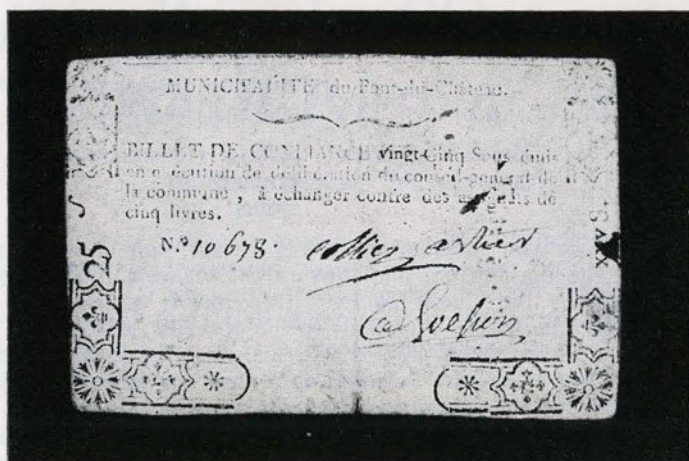 MUNICIPALITÉ du Pont-du-Château.
BILLET DE CONFIANCE vingt-Cinq Sous émis
en exécution de délibération du conseil-general de
la commune, à échanger contre des assignats de
cinq livres.
N.º 10678.
25 S